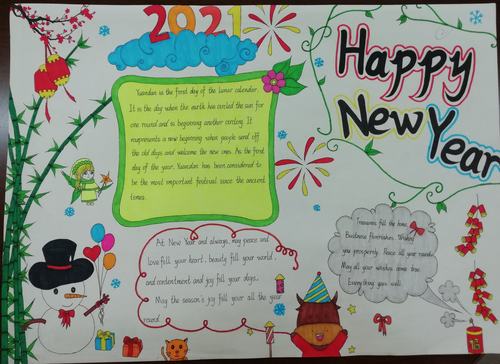 2021
Happy
New Year
Yuandan is the first day of the lunar calender.
It is the day when the earth has circled the sun for
one round and is beginning another circling. It
represents a new beginning when people send off
the old days and welcome the new ones. As the first
day of the year, Yuandan has been considered to
be the most important festival since the ancient
times.
At New Year and always, may peace and
love fill your heart, beauty fill your world,
and contentment and joy fill your days.
May the season's joy fill your all the year
round.
Treasures fill the home
Business flourishes. Wishing
you prosperity. Peace all year round.
May all your wishes come true
Everything goes well.